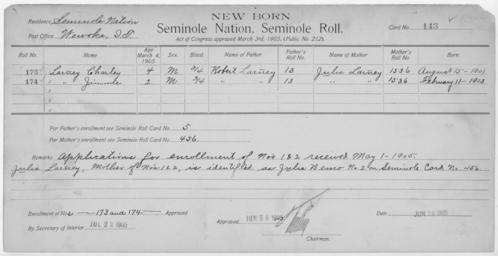 NEW BORN
Residence Seminole Nation
Seminole Nation, Seminole Roll.
Card No. 143
Post Office Wewoka, I.T.
Act of Congress approved March 3rd, 1905, (Public No. 212).
Roll No. Name Age March 4, 1905. Sex. Blood. Name of Father Father's Roll No. Name of Mother Mother's Roll No. Born:
173 Larney Charley 4 M 3/4 Robert Larney 13 Julia Larney 1536 August 15-1901
174 " " Jimmie 2 M 3/4 " " 13 " " 1536 February 11-1903
For Father's enrollment see Seminole Roll Card No. 5
For Mother's enrollment see Seminole Roll Card No. 456
Remarks Applications for enrollment of Nos 1 & 2 received May 1-1905.
Julia Larney, Mother of Nos 1 & 2, is identified as Julia Bemo No 2 on Seminole Card No. 456
Enrollment of Nos 173 and 174 Approved
By Secretary of Interior JUL 22 1905
Approved
Chairman.
Date of Approval JUN 28 1905